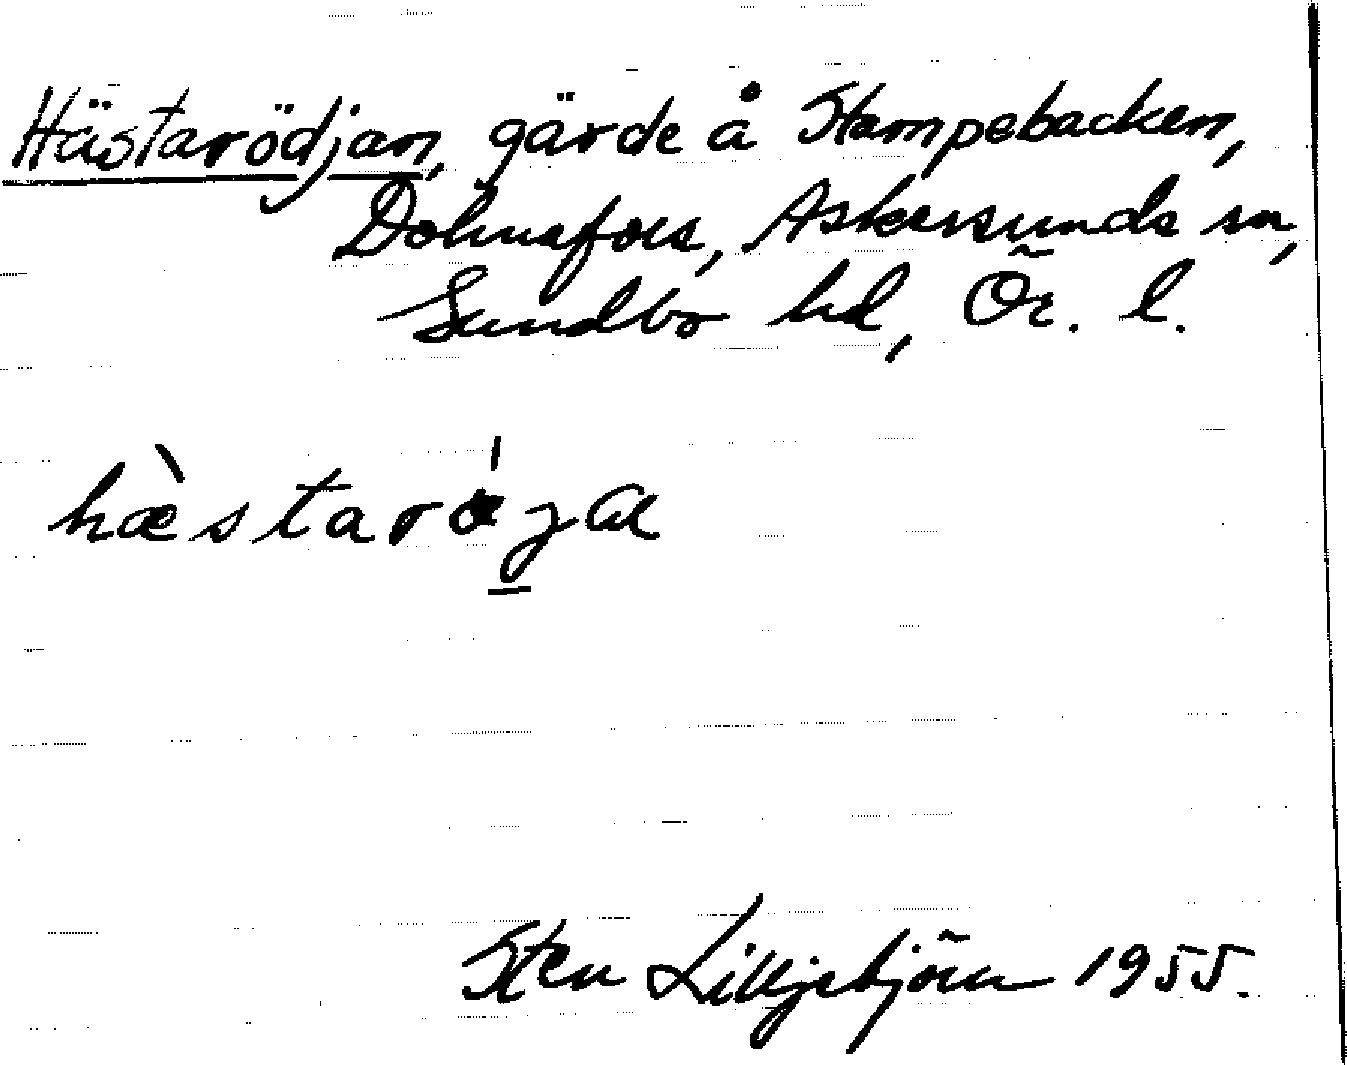 Hästarödjan, gärde å Stampebacken,
Dohnafors, Askersunds sn,
Sundbo hd, Ör. l.
hæ̀starø̍ja
Sten Lilljebjörn 1955.